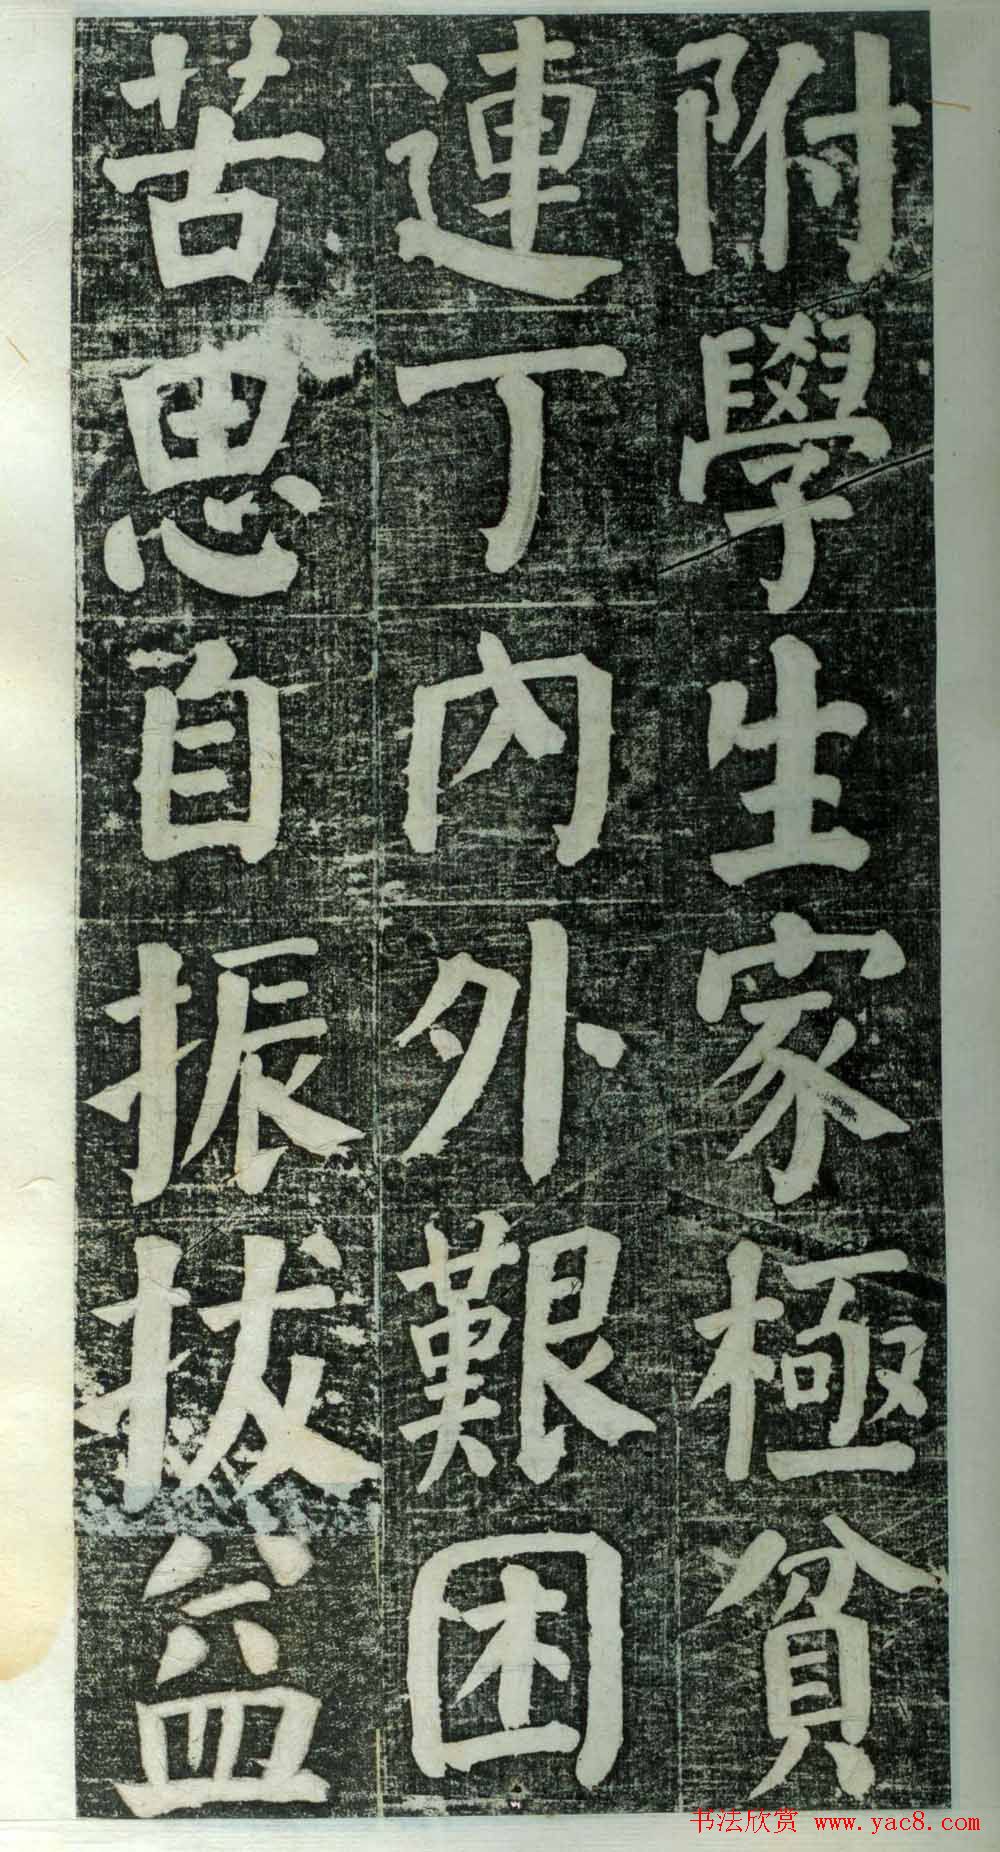 附學生家極貧
連丁內外艱困
苦思自振拔益
书法欣赏 www.yac8.com